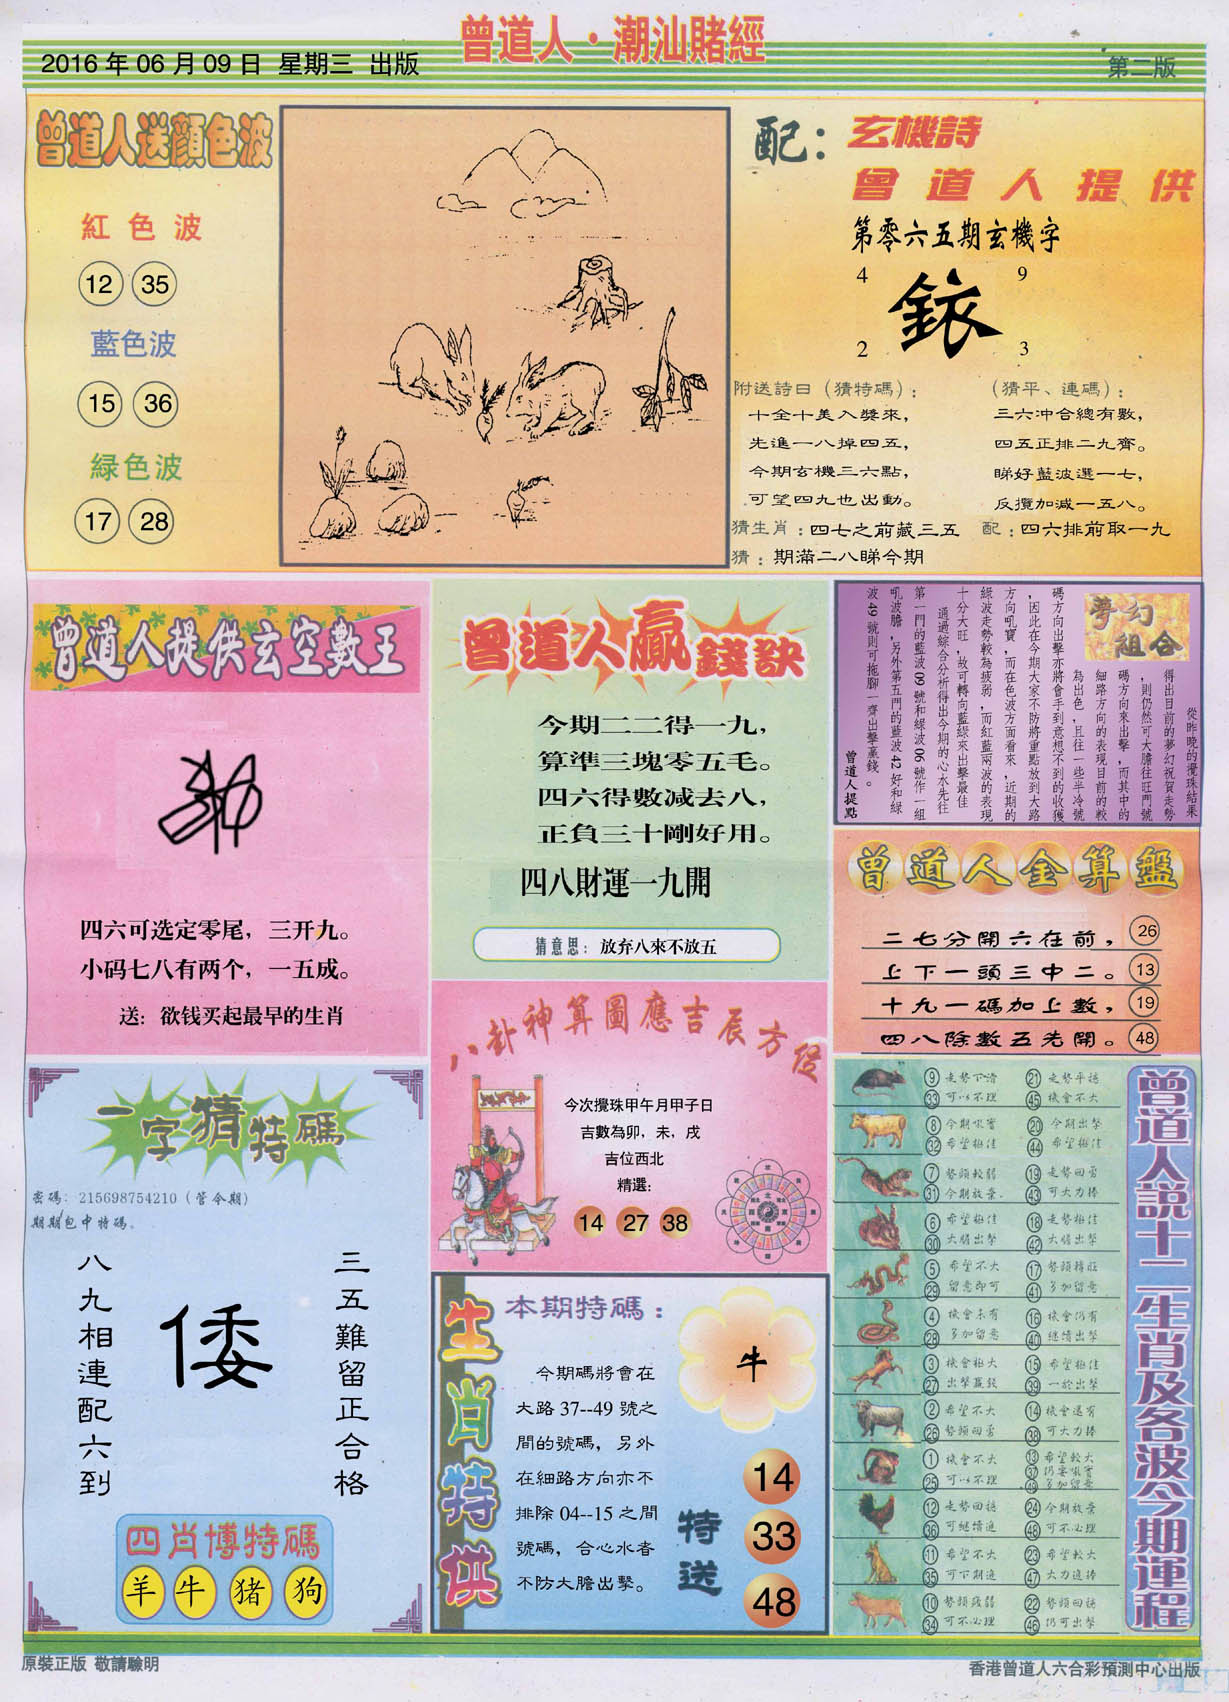 曾道人·潮汕賭經
2016 年 06 月 09 日 星期三 出版
第二版
曾道人送顏色波
紅色波
12 35
藍色波
15 36
緑色波
17 28
配：玄機詩
曾道人提供
第零六五期玄機字
4 9
銥
2 3
附送詩曰（猜特碼）：
十全十美入獎來，
先進一八掉四五，
今期玄機三六點，
可望四九也出動。
（猜平、連碼）：
三六冲合總有數，
四五正排二九齊。
睇好藍波選一七，
反攬加減一五八。
猜生肖：四七之前藏三五
配：四六排前取一九
猜：期滿二八睇今期
曾道人提供玄空數王
四六可选定零尾，三开九。
小码七八有两个，一五成。
送：欲钱买起最早的生肖
曾道人贏錢訣
今期二二得一九，
算準三塊零五毛。
四六得數減去八，
正負三十剛好用。
四八財運一九開
猜意思：放弃八來不放五
夢幻組合
從昨晚的攪珠結果
得出目前的夢幻祝賀走勢
，則仍然可大膽往旺門號
碼方向來出擊，而其中的
細路方向的表現目前的較
為出色，且往一些半冷號
碼方向出擊亦將會手到意想不到的收獲
，因此在今期大家不防將重點放到大路
方向吼寶，而在色波方面看來，近期的
綠波走勢較為疲弱，而紅藍兩波的表現
十分大旺，故可轉向藍綠來出擊最佳
通過綜合分析得出今期的心水先往
第一門的藍波 09 號和綠波 06 號作一組
吼波膽，另外第五門的藍波 42 好和綠
波 49 號則可拖腳一齊出擊贏錢。
曾道人提點
曾道人金算盤
二七分開六在前， 26
上下一頭三中二。 13
十九一碼加上數， 19
四八除數五先開。 48
八卦神算圖應吉辰方位
今次攪珠甲午月甲子日
吉數為卯，未，戌
吉位西北
精選：
14 27 38
一字猜特碼
密碼：215698754210（管令期）
期期包中特碼。
八九相連配六到
倭
三五難留正合格
四肖博特碼
羊 牛 猪 狗
生肖特供
本期特碼：
牛
今期碼將會在
大路 37--49 號之
間的號碼，另外
在細路方向亦不
排除 04--15 之間
號碼，合心水者
不防大膽出擊。
特送
14
33
48
曾道人説十二生肖及各波今期運程
9 走勢下滑 21 走勢平穩
33 可以不理 45 機會不大
8 今期吼寶 20 今期出擊
32 希望極佳 44 希望極佳
7 勢頭較弱 19 走勢回勇
31 今期放棄 43 可大力捧
6 希望極佳 18 走勢極佳
30 大膽出擊 42 大膽出擊
5 希望不大 17 勢頭轉旺
29 留意即可 41 多加留意
4 機會未有 16 機會仍有
28 多加留意 40 繼續出擊
3 機會極大 15 希望極佳
27 出擊贏錢 39 一於出擊
2 希望不大 14 機會還有
26 勢頭回勇 38 可大力捧
1 機會不大 13 希望較大
25 可以不理 37 仍要吼實
49 多加留意
12 走勢回穩 24 今期放棄
36 可繼續追 48 可不必理
11 希望不大 23 希望較大
35 可下期追 47 大力追捧
10 勢頭疲弱 22 走勢回穩
34 可不必理 46 仍可出擊
原裝正版 敬請驗明
香港曾道人六合彩預測中心出版